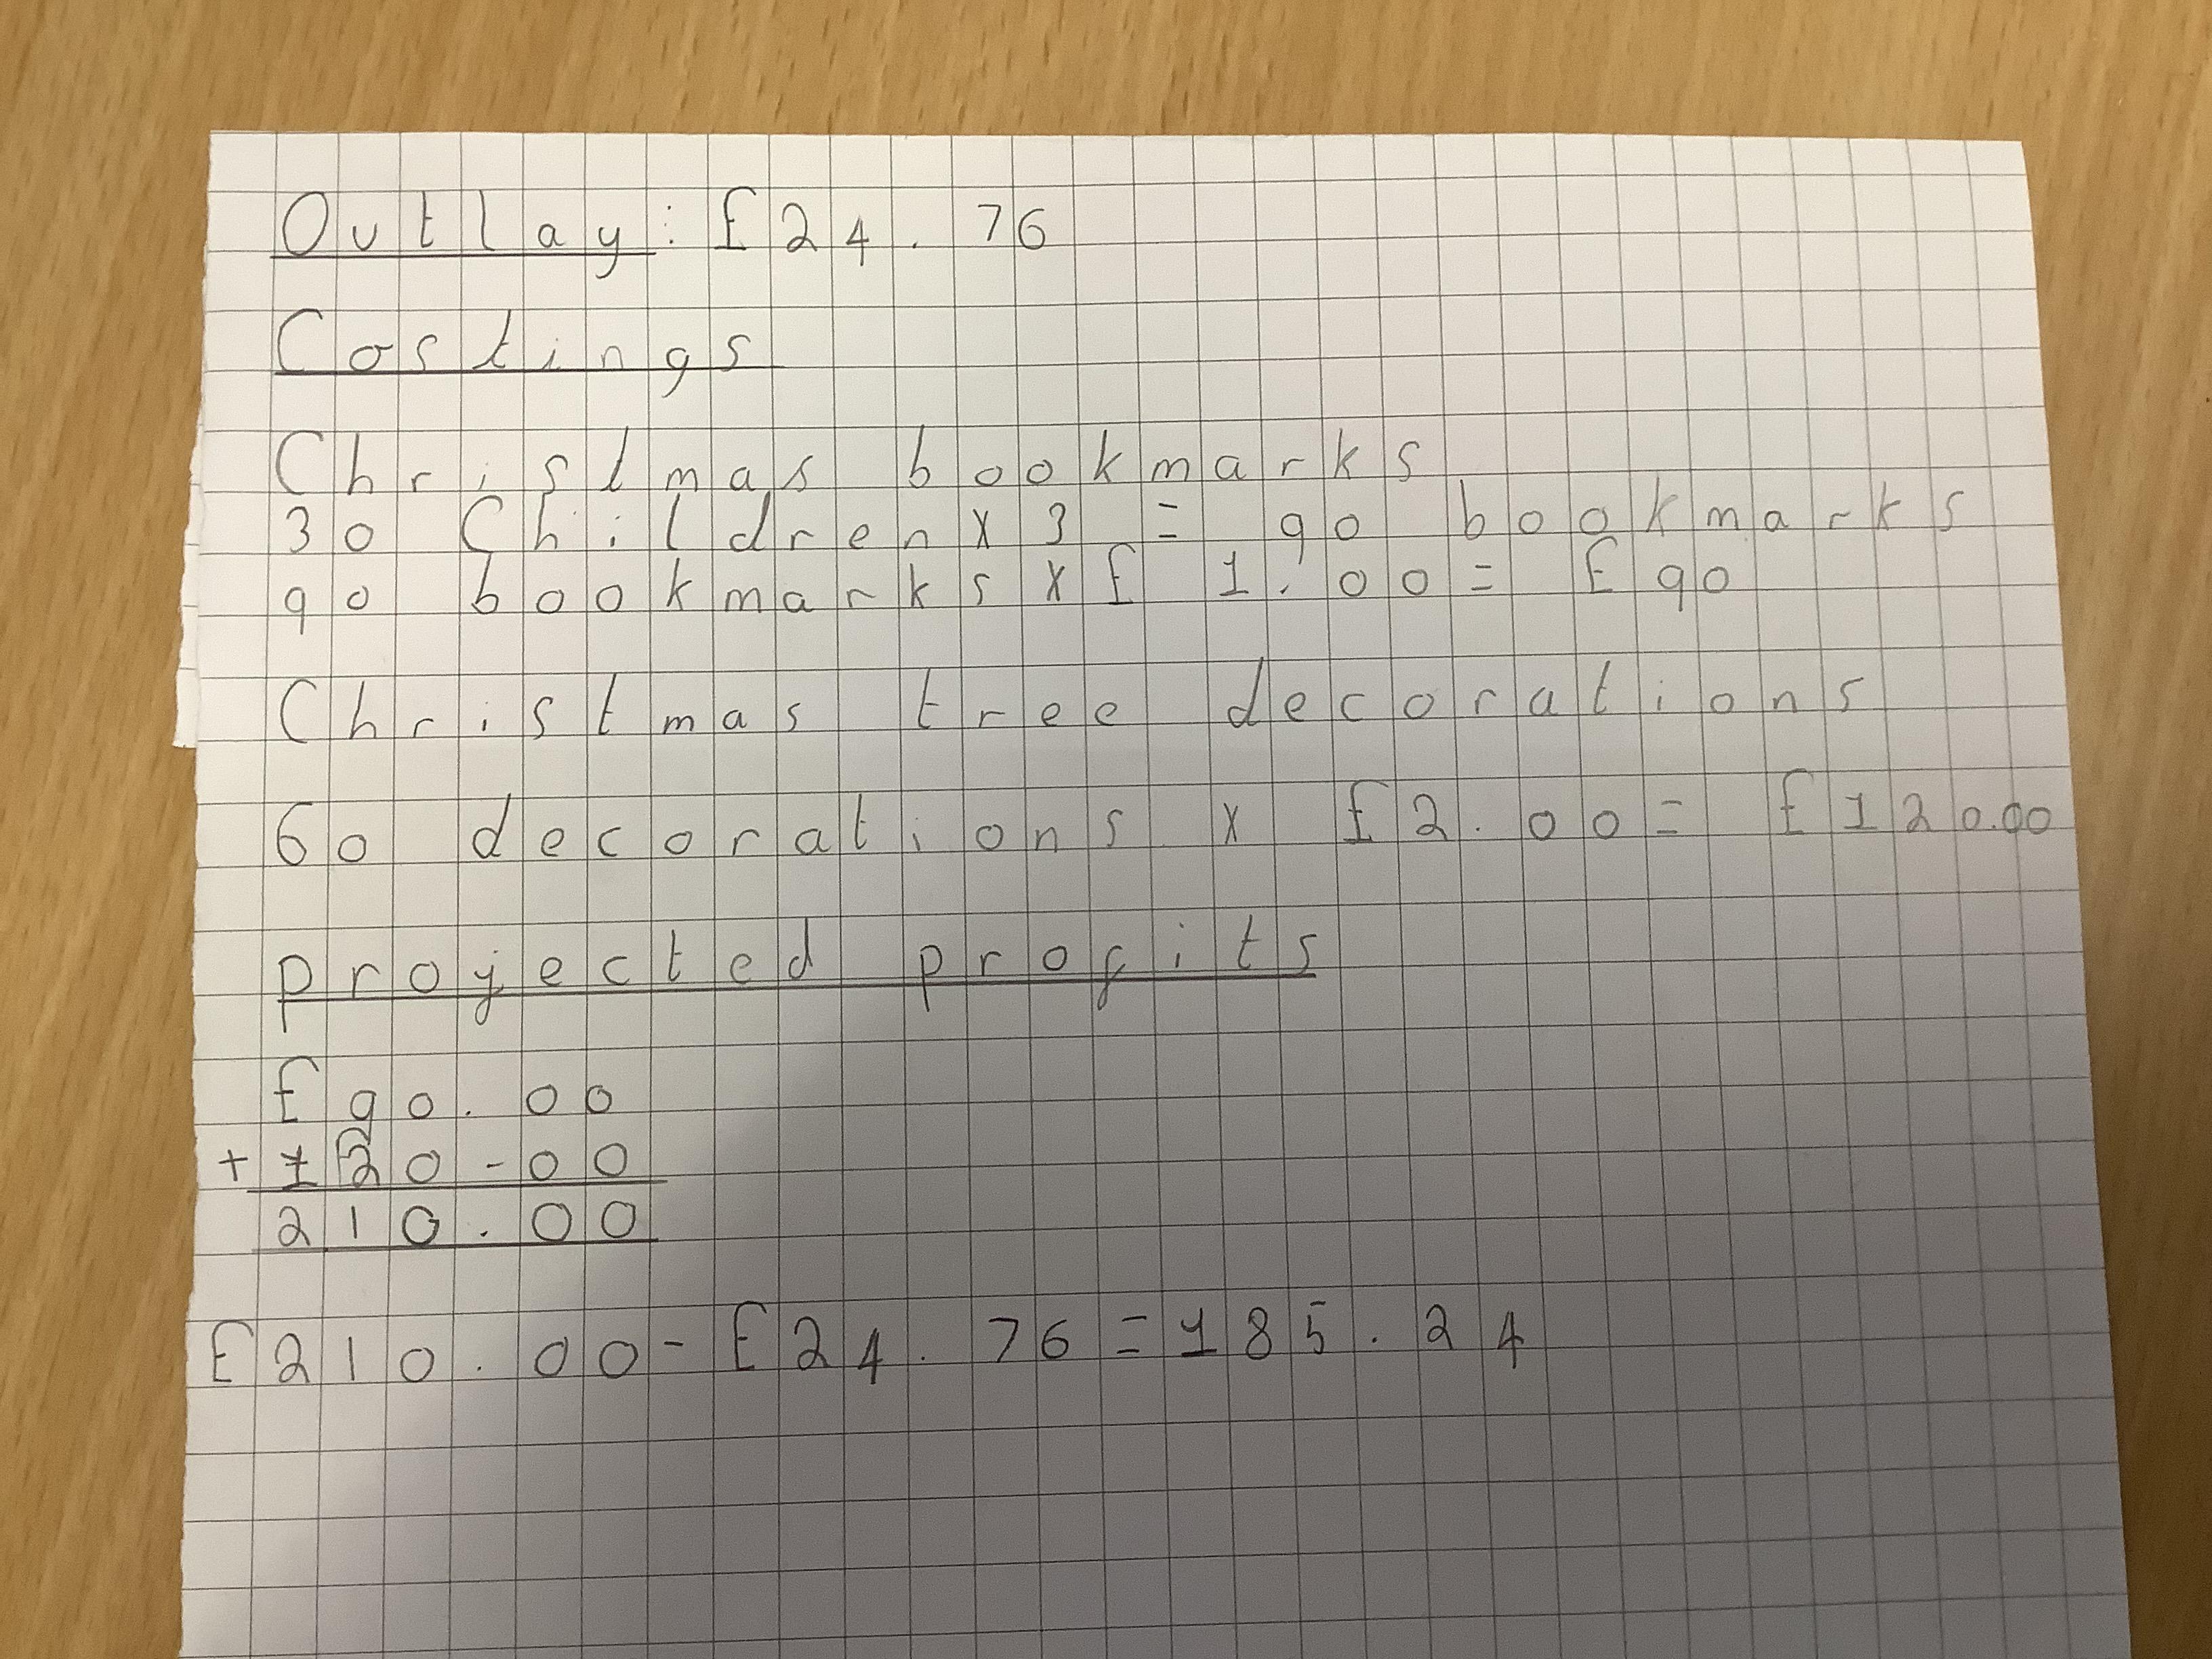 Outlay: £24.76
Costings
Christmas bookmarks
30 Children x 3 = 90 bookmarks
90 bookmarks x £1.00 = £90
Christmas tree decorations
60 decorations x £2.00 = £120.00
projected profits
£90.00
+ 120-00
210.00
£210.00 - £24.76 = 185.24